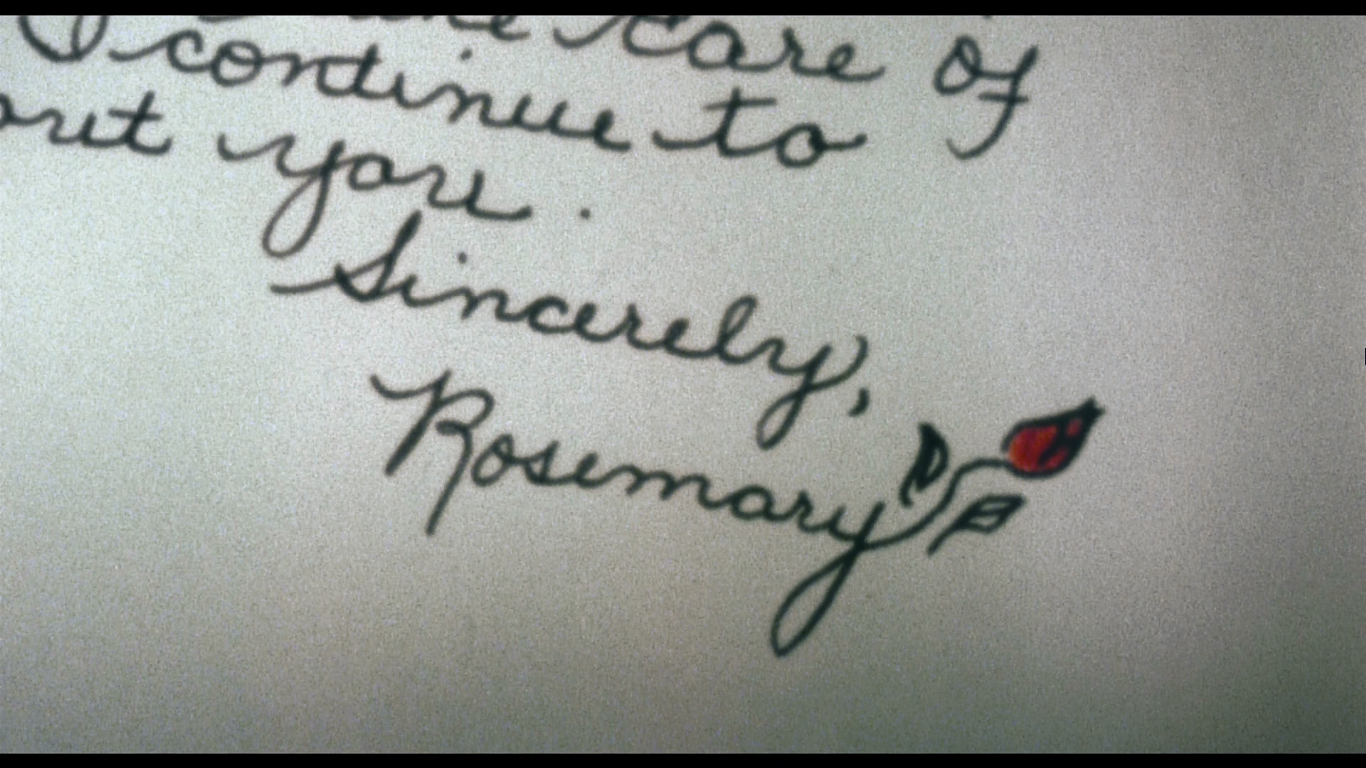 care of
I continue to
you.
Sincerely,
Rosemary